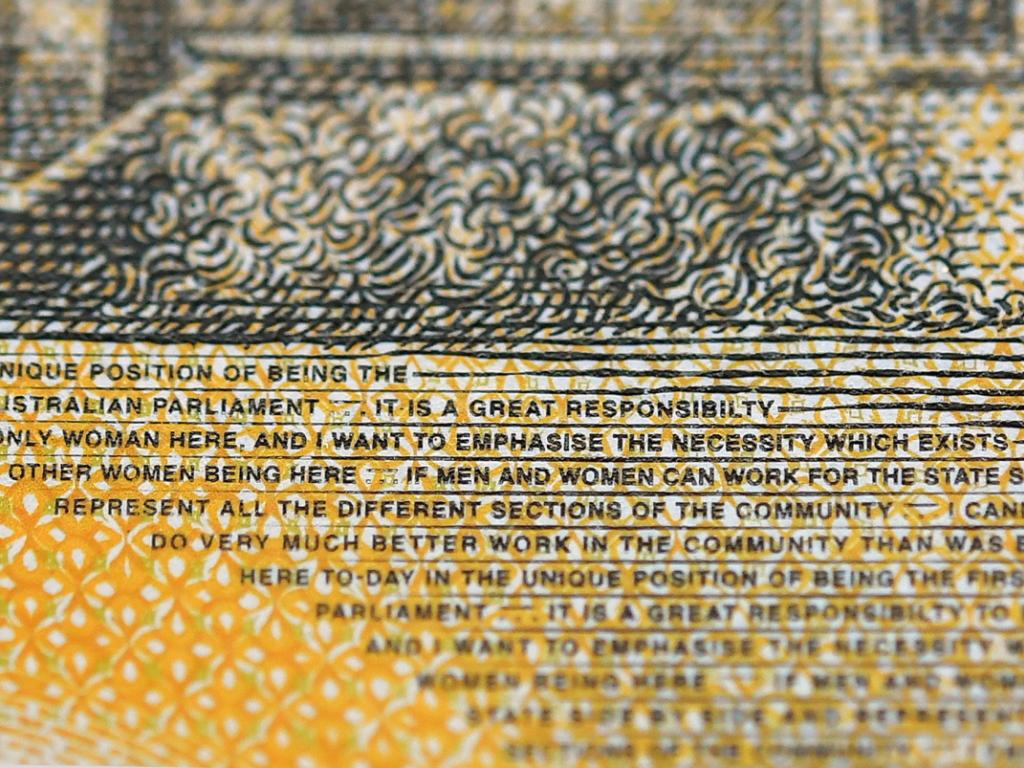 NIQUE POSITION OF BEING THE
STRALIAN PARLIAMENT — . IT IS A GREAT RESPONSIBILTY
ONLY WOMAN HERE, AND I WANT TO EMPHASISE THE NECESSITY WHICH EXISTS
OTHER WOMEN BEING HERE — . IF MEN AND WOMEN CAN WORK FOR THE STATE S
REPRESENT ALL THE DIFFERENT SECTIONS OF THE COMMUNITY — I CAN
DO VERY MUCH BETTER WORK IN THE COMMUNITY THAN WAS
HERE TO-DAY IN THE UNIQUE POSITION OF BEING THE FIRS
PARLIAMENT — . IT IS A GREAT RESPONSIBILTY TO
AND I WANT TO EMPHASISE THE NECESSITY
WOMEN BEING HERE — IF MEN AND
STATE SIDE BY SIDE AND REPRESEN
SECTIONS OF THE COMMUNITY